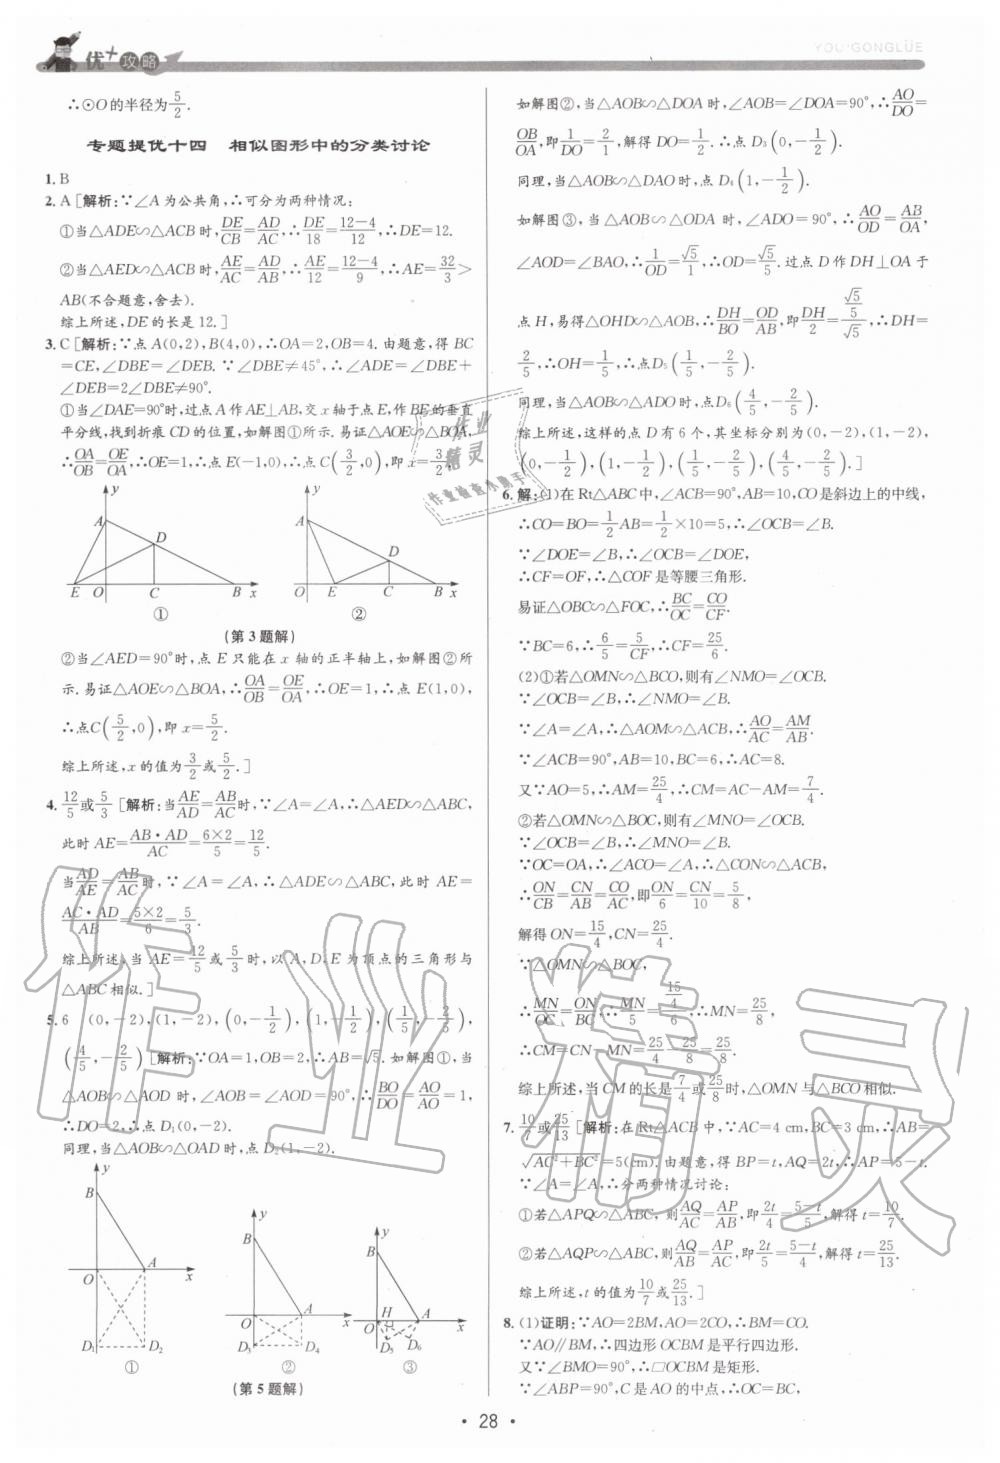 优+攻略
YOU+GONGLÜE
∴⊙O的半径为5/2.
专题提优十四 相似图形中的分类讨论
1. B
2. A [解析:∵∠A为公共角,∴可分为两种情况:
①当△ADE∽△ACB时,DE/CB=AD/AC,∴DE/18=(12-4)/12,∴DE=12.
②当△AED∽△ACB时,AE/AC=AD/AB,∴AE/12=(12-4)/9,∴AE=32/3>
AB(不合题意,舍去).
综上所述,DE的长是12.]
3. C [解析:∵点A(0,2),B(4,0),∴OA=2,OB=4. 由题意,得BC
=CE,∠DBE=∠DEB. ∵∠DBE≠45°,∴∠ADE=∠DBE+
∠DEB=2∠DBE≠90°.
①当∠DAE=90°时,过点A作AE⊥AB,交x轴于点E,作BE的垂直
平分线,找到折痕CD的位置,如解图①所示. 易证△AOE∽△BOA,
∴OA/OB=OE/OA,∴OE=1,∴点E(-1,0),∴点C(3/2,0),即x=3/2;
y
A
D
E O C B x
①
y
A
D
O E C B x
②
(第3题解)
②当∠AED=90°时,点E只能在x轴的正半轴上,如解图②所
示. 易证△AOE∽△BOA,∴OA/OB=OE/OA,∴OE=1,∴点E(1,0),
∴点C(5/2,0),即x=5/2.
综上所述,x的值为3/2或5/2.]
4. 12/5或5/3 [解析:当AE/AD=AB/AC时,∵∠A=∠A,∴△AED∽△ABC,
此时AE=AB·AD/AC=6×2/5=12/5.
当AD/AE=AB/AC时,∵∠A=∠A,∴△ADE∽△ABC,此时AE=
AC·AD/AB=5×2/6=5/3.
综上所述,当AE=12/5或5/3时,以A,D,E为顶点的三角形与
△ABC相似.]
5. 6 (0,-2),(1,-2),(0,-1/2),(1,-1/2),(1/5,-2/5),
(4/5,-2/5) [解析:∵OA=1,OB=2,∴AB=√5. 如解图①,当
△AOB∽△AOD时,∠AOB=∠AOD=90°,∴BO/DO=AO/AO=1,
∴DO=2,∴点D₁(0,-2).
同理,当△AOB∽△OAD时,点D₂(1,-2).
y
B
O A x
D₁ D₂
①
y
B
O A x
D₃ D₄
②
y
B
O H A x
D₅ D₆
③
(第5题解)
如解图②,当△AOB∽△DOA时,∠AOB=∠DOA=90°,∴AO/DO=
OB/OA,即1/DO=2/1,解得DO=1/2,∴点D₃(0,-1/2).
同理,当△AOB∽△DAO时,点D₄(1,-1/2).
如解图③,当△AOB∽△ODA时,∠ADO=90°,∴AO/OD=AB/OA,
∠AOD=∠BAO,∴1/OD=√5/1,∴OD=√5/5. 过点D作DH⊥OA于
点H,易得△OHD∽△AOB,∴DH/BO=OD/AB,即DH/2=(√5/5)/√5,∴DH=
2/5,∴OH=1/5,∴点D₅(1/5,-2/5).
同理,当△AOB∽△ADO时,点D₆(4/5,-2/5).
综上所述,这样的点D有6个,其坐标分别为(0,-2),(1,-2),
(0,-1/2),(1,-1/2),(1/5,-2/5),(4/5,-2/5).]
6. 解:(1)在Rt△ABC中,∠ACB=90°,AB=10,CO是斜边上的中线,
∴CO=BO=1/2AB=1/2×10=5,∴∠OCB=∠B.
∵∠DOE=∠B,∴∠OCB=∠DOE,
∴CF=OF,∴△COF是等腰三角形.
易证△OBC∽△FOC,∴BC/OC=CO/CF.
∵BC=6,∴6/5=5/CF,∴CF=25/6.
(2)①若△OMN∽△BCO,则有∠NMO=∠OCB.
∵∠OCB=∠B,∴∠NMO=∠B.
∵∠A=∠A,∴△AOM∽△ACB,∴AO/AC=AM/AB.
∵∠ACB=90°,AB=10,BC=6,∴AC=8.
又∵AO=5,∴AM=25/4,∴CM=AC-AM=7/4.
②若△OMN∽△BOC,则有∠MNO=∠OCB.
∵∠OCB=∠B,∴∠MNO=∠B.
∵OC=OA,∴∠ACO=∠A,∴△CON∽△ACB,
∴ON/CB=CN/AB=CO/AC,即ON/6=CN/10=5/8,
解得ON=15/4,CN=25/4.
∵△OMN∽△BOC,
∴MN/OC=ON/BC,∴MN/5=(15/4)/6,∴MN=25/8,
∴CM=CN-MN=25/4-25/8=25/8.
综上所述,当CM的长是7/4或25/8时,△OMN与△BCO相似.
7. 10/7或25/13 [解析:在Rt△ACB中,∵AC=4 cm,BC=3 cm,∴AB=
√(AC²+BC²)=5(cm). 由题意,得BP=t,AQ=2t,∴AP=5-t.
∵∠A=∠A,∴分两种情况讨论:
①若△APQ∽△ABC,则AQ/AC=AP/AB,即2t/4=(5-t)/5,解得t=10/7.
②若△AQP∽△ABC,则AQ/AB=AP/AC,即2t/5=(5-t)/4,解得t=25/13.
综上所述,t的值为10/7或25/13.]
8. (1)证明:∵AO=2BM,AO=2CO,∴BM=CO.
∵AO∥BM,∴四边形OCBM是平行四边形.
又∵∠BMO=90°,∴□OCBM是矩形.
∵∠ABP=90°,C是AO的中点,∴OC=BC,
· 28 ·
作业精灵
作业精灵
作业检查小助手